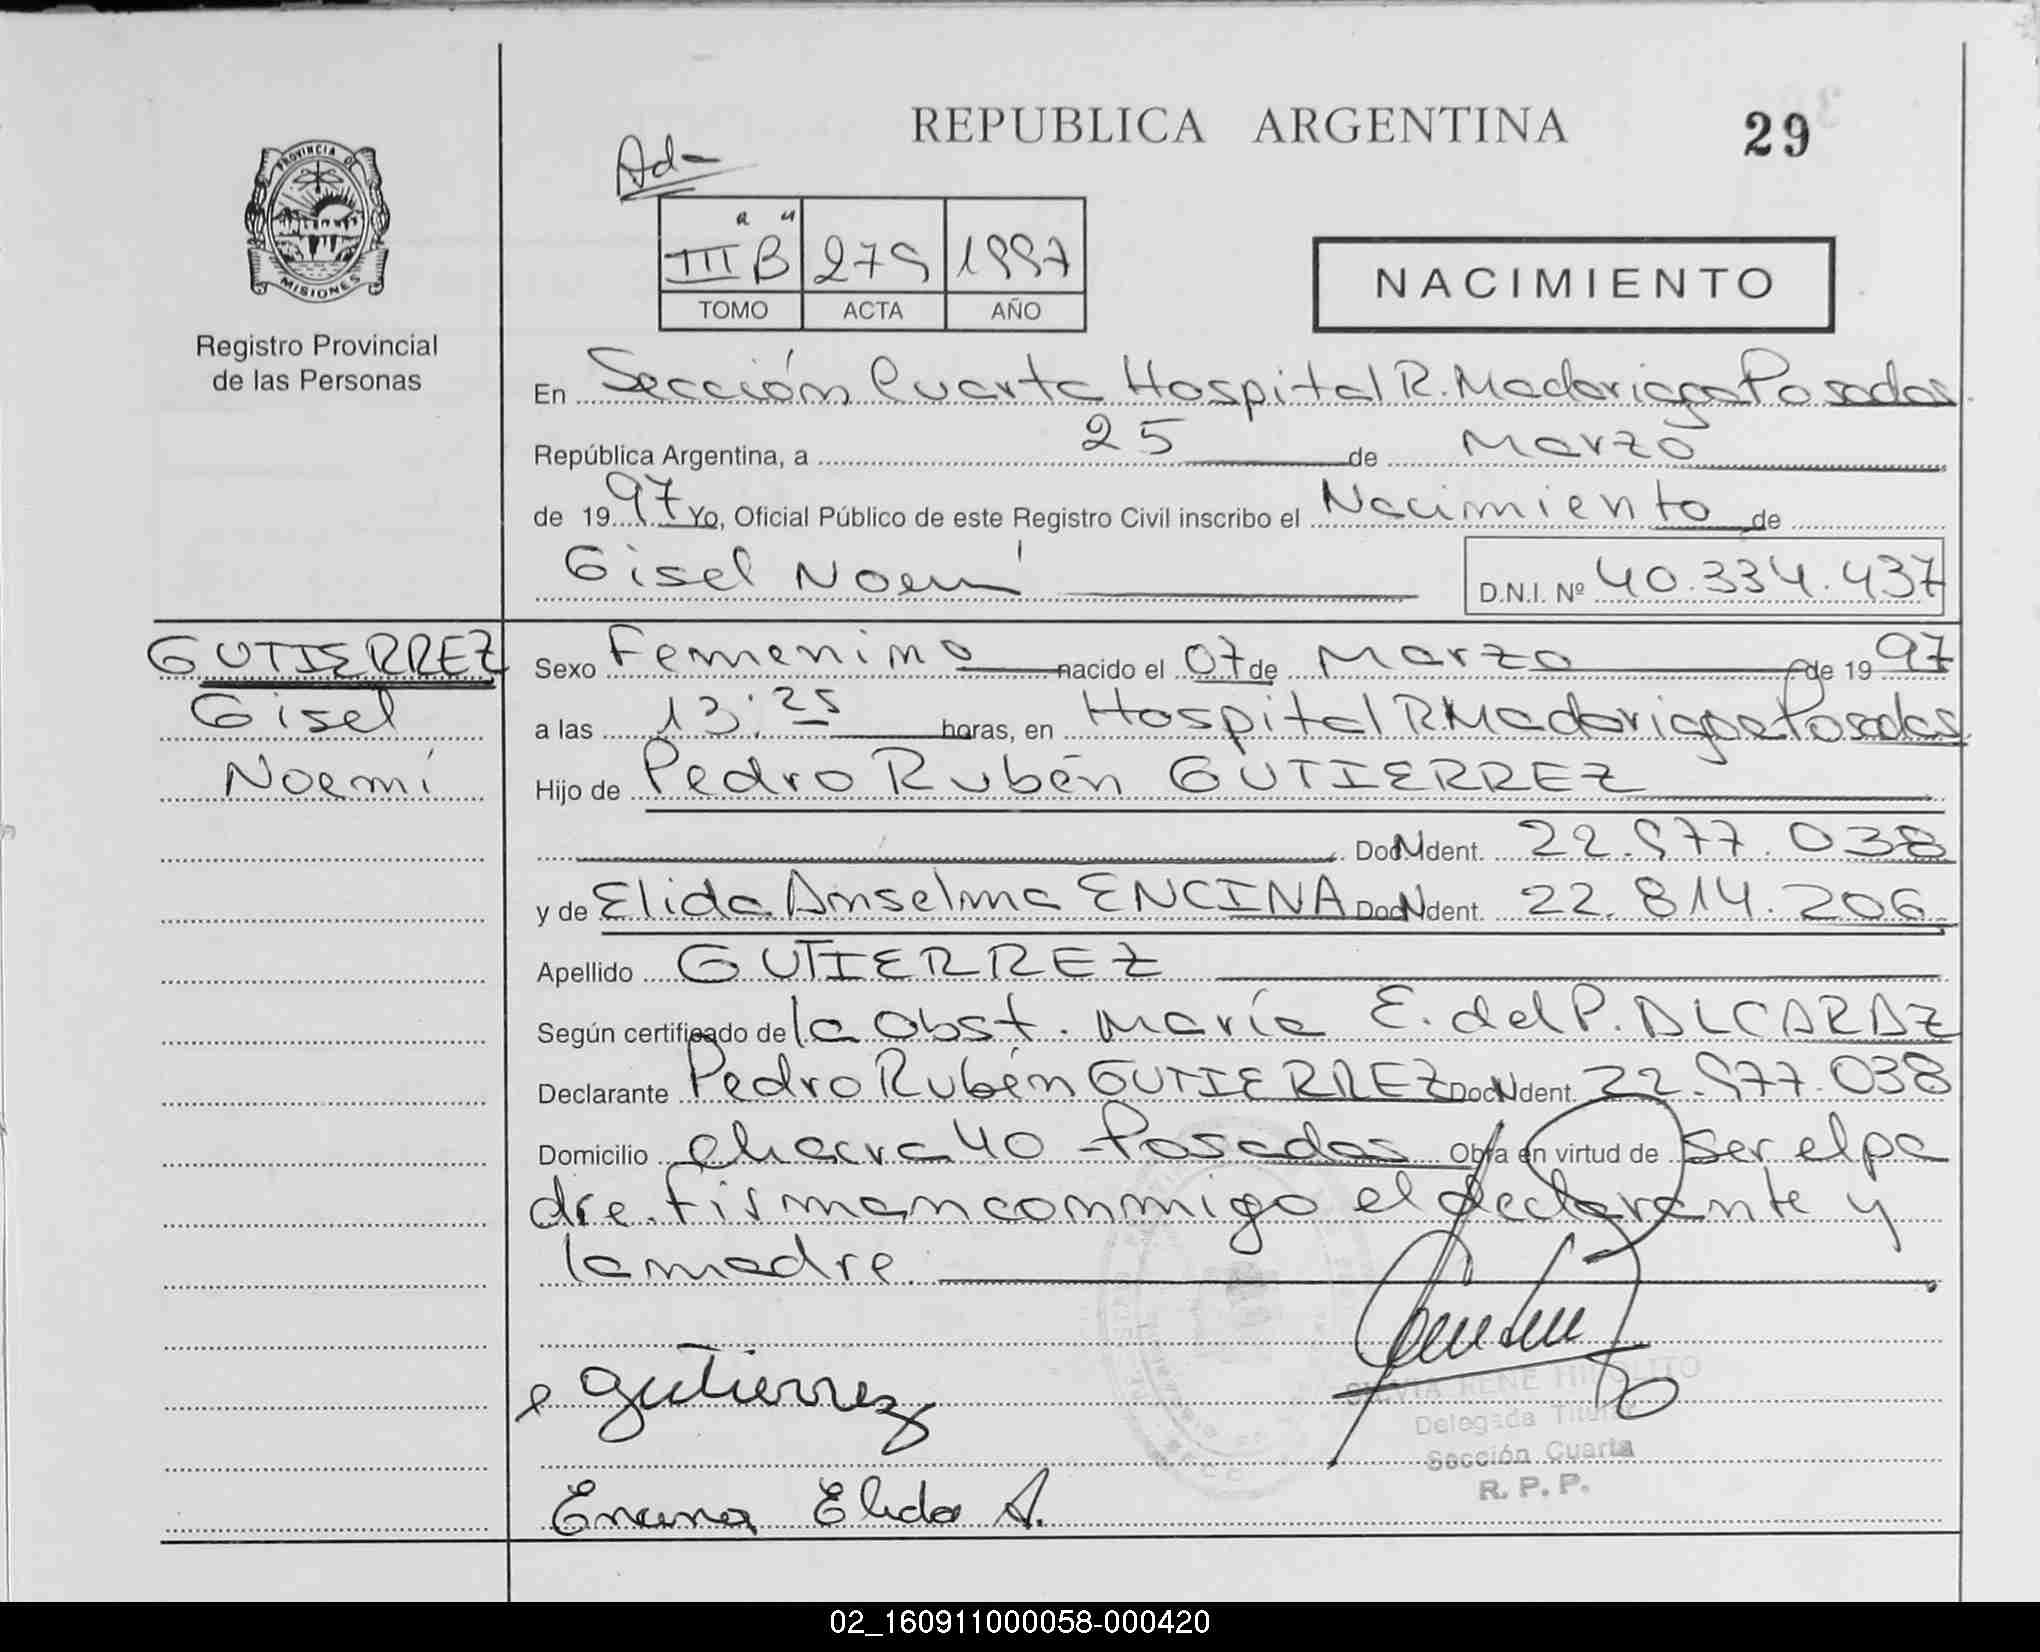 REPUBLICA ARGENTINA
29
Ad-
PROVINCIA DE
MISIONES
Registro Provincial
de las Personas
" "
III B 279 1997
TOMO ACTA AÑO
NACIMIENTO
En Sección Cuarta Hospital R. Madariaga Posadas.
República Argentina, a 25 de Marzo
de 1997 Yo, Oficial Público de este Registro Civil inscribo el Nacimiento de
Gisel Noemí
D.N.I. Nº 40.334.437
GUTIERREZ
Gisel
Noemí
Sexo Femenino nacido el 07 de Marzo de 1997
a las 13:25 horas, en Hospital R. Madariaga Posadas
Hijo de Pedro Rubén GUTIERREZ
Doc N Ident. 22.977.038
y de Elida Anselma ENCINA Doc N Ident. 22.814.206
Apellido GUTIERREZ
Según certificado de la Obst. María E. del P. ALCARAZ
Declarante Pedro Rubén GUTIERREZ Doc N Ident. 22.977.038
Domicilio chacra 40 - Posadas Obra en virtud de ser el pa
dre. Firman conmigo el declarante y
la madre.
Gutierrez
SILVIA RENE HIPOLITO
Delegada Titular
Sección Cuarta
R. P. P.
Encina Elida A.
02_160911000058-000420